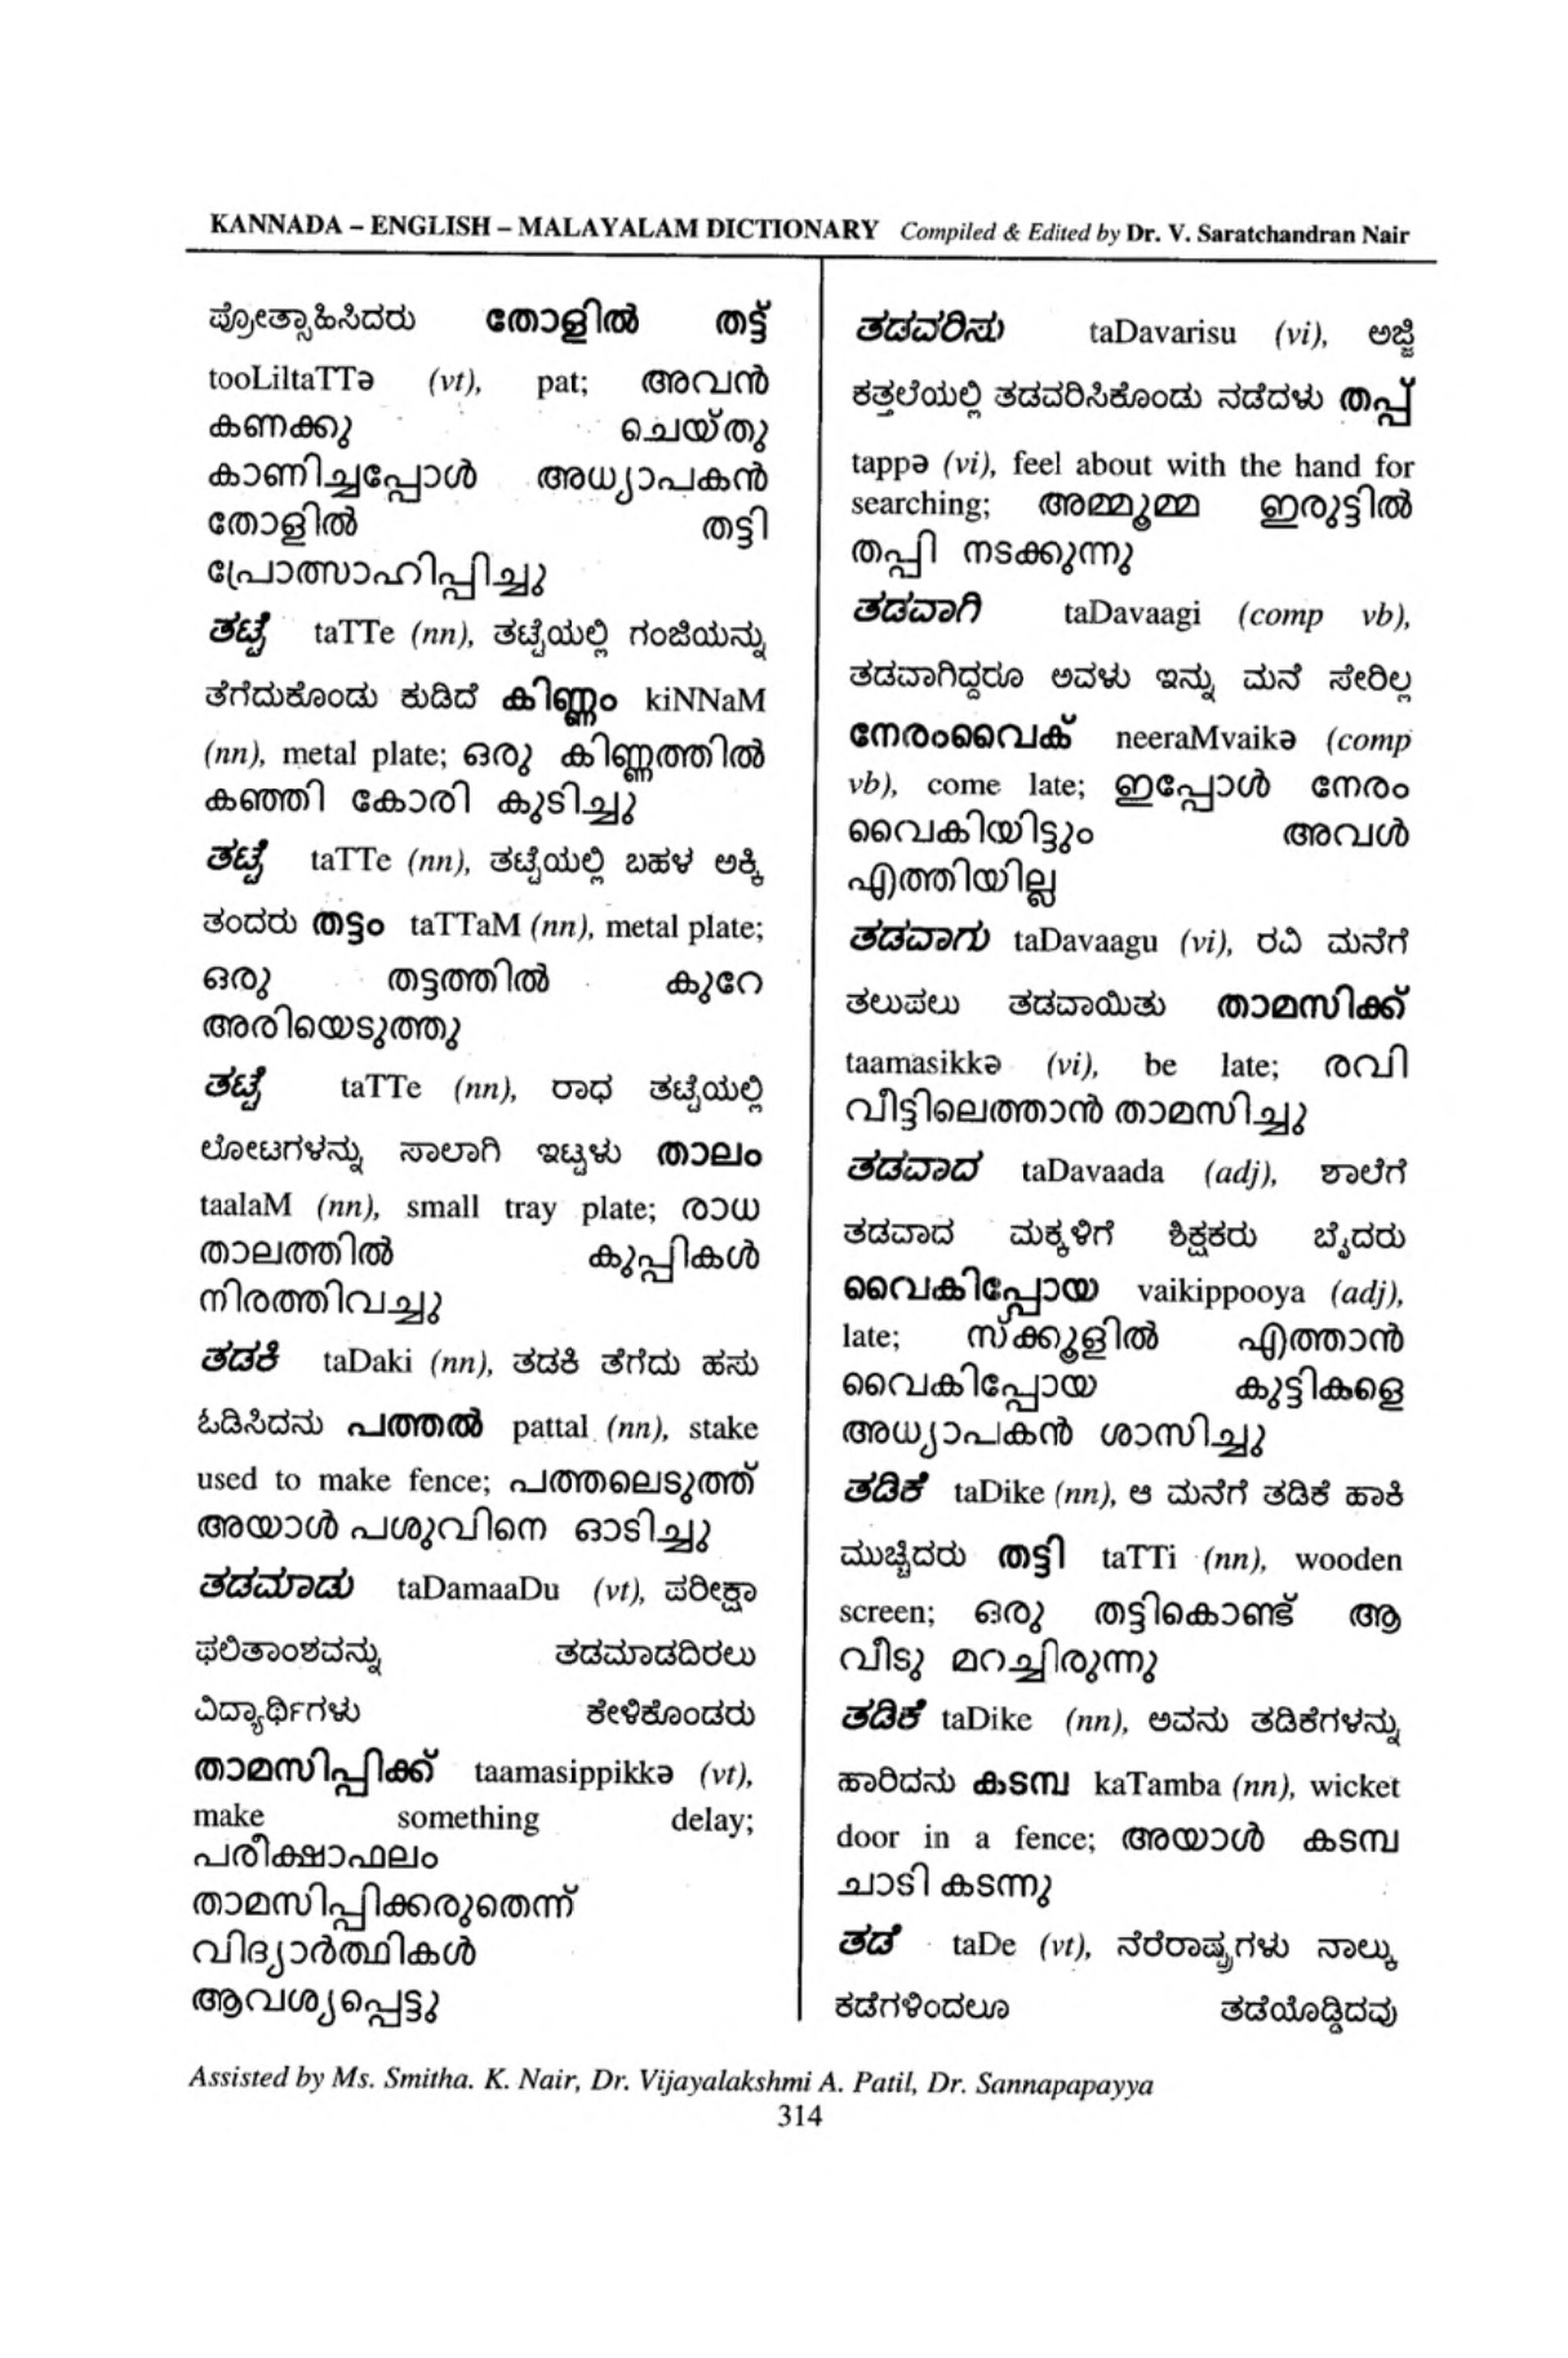 KANNADA – ENGLISH – MALAYALAM DICTIONARY Compiled & Edited by Dr. V. Saratchandran Nair
ಪ್ರೋತ್ಸಾಹಿಸಿದರು തോളിൽ തട്ട്
tooLiltaTTə (vt), pat; അവൻ
കണക്കു ചെയ്തു
കാണിച്ചപ്പോൾ അധ്യാപകൻ
തോളിൽ തട്ടി
പ്രോത്സാഹിപ്പിച്ചു
ತಟ್ಟೆ taTTe (nn), ತಟ್ಟೆಯಲ್ಲಿ ಗಂಜಿಯನ್ನು
ತೆಗೆದುಕೊಂಡು ಕುಡಿದೆ കിണ്ണം kiNNaM
(nn), metal plate; ഒരു കിണ്ണത്തിൽ
കഞ്ഞി കോരി കുടിച്ചു
ತಟ್ಟೆ taTTe (nn), ತಟ್ಟೆಯಲ್ಲಿ ಬಹಳ ಅಕ್ಕಿ
ತಂದರು തട്ടം taTTaM (nn), metal plate;
ഒരു തട്ടത്തിൽ കുറേ
അരിയെടുത്തു
ತಟ್ಟೆ taTTe (nn), ರಾಧ ತಟ್ಟೆಯಲ್ಲಿ
ಲೋಟಗಳನ್ನು ಸಾಲಾಗಿ ಇಟ್ಟಳು താലം
taalaM (nn), small tray plate; രാധ
താലത്തിൽ കുപ്പികൾ
നിരത്തിവച്ചു
ತಡಕಿ taDaki (nn), ತಡಕಿ ತೆಗೆದು ಹಸು
ಓಡಿಸಿದನು പത്തൽ pattal (nn), stake
used to make fence; പത്തലെടുത്ത്
അയാൾ പശുവിനെ ഓടിച്ചു
ತಡಮಾಡು taDamaaDu (vt), ಪರೀಕ್ಷಾ
ಫಲಿತಾಂಶವನ್ನು ತಡಮಾಡದಿರಲು
ವಿದ್ಯಾರ್ಥಿಗಳು ಕೇಳಿಕೊಂಡರು
താമസിപ്പിക്ക് taamasippikkə (vt),
make something delay;
പരീക്ഷാഫലം
താമസിപ്പിക്കരുതെന്ന്
വിദ്യാർത്ഥികൾ
ആവശ്യപ്പെട്ടു
ತಡವರಿಸು taDavarisu (vi), ಅಜ್ಜಿ
ಕತ್ತಲೆಯಲ್ಲಿ ತಡವರಿಸಿಕೊಂಡು ನಡೆದಳು തപ്പ്
tappə (vi), feel about with the hand for
searching; അമ്മൂമ്മ ഇരുട്ടിൽ
തപ്പി നടക്കുന്നു
ತಡವಾಗಿ taDavaagi (comp vb),
ತಡವಾಗಿದ್ದರೂ ಅವಳು ಇನ್ನು ಮನೆ ಸೇರಿಲ್ಲ
നേരംവൈക് neeraMvaikə (comp
vb), come late; ഇപ്പോൾ നേരം
വൈകിയിട്ടും അവൾ
എത്തിയില്ല
ತಡವಾಗು taDavaagu (vi), ರವಿ ಮನೆಗೆ
ತಲುಪಲು ತಡವಾಯಿತು താമസിക്ക്
taamasikkə (vi), be late; രവി
വീട്ടിലെത്താൻ താമസിച്ചു
ತಡವಾದ taDavaada (adj), ಶಾಲೆಗೆ
ತಡವಾದ ಮಕ್ಕಳಿಗೆ ಶಿಕ್ಷಕರು ಬೈದರು
വൈകിപ്പോയ vaikippooya (adj),
late; സ്ക്കൂളിൽ എത്താൻ
വൈകിപ്പോയ കുട്ടികളെ
അധ്യാപകൻ ശാസിച്ചു
ತಡಿಕೆ taDike (nn), ಆ ಮನೆಗೆ ತಡಿಕೆ ಹಾಕಿ
ಮುಚ್ಚಿದರು തട്ടി taTTi (nn), wooden
screen; ഒരു തട്ടികൊണ്ട് ആ
വീടു മറച്ചിരുന്നു
ತಡಿಕೆ taDike (nn), ಅವನು ತಡಿಕೆಗಳನ್ನು
ಹಾರಿದನು കടമ്പ kaTamba (nn), wicket
door in a fence; അയാൾ കടമ്പ
ചാടി കടന്നു
ತಡೆ taDe (vt), ನೆರೆರಾಷ್ಟ್ರಗಳು ನಾಲ್ಕು
ಕಡೆಗಳಿಂದಲೂ ತಡೆಯೊಡ್ಡಿದವು
Assisted by Ms. Smitha. K. Nair, Dr. Vijayalakshmi A. Patil, Dr. Sannapapayya
314